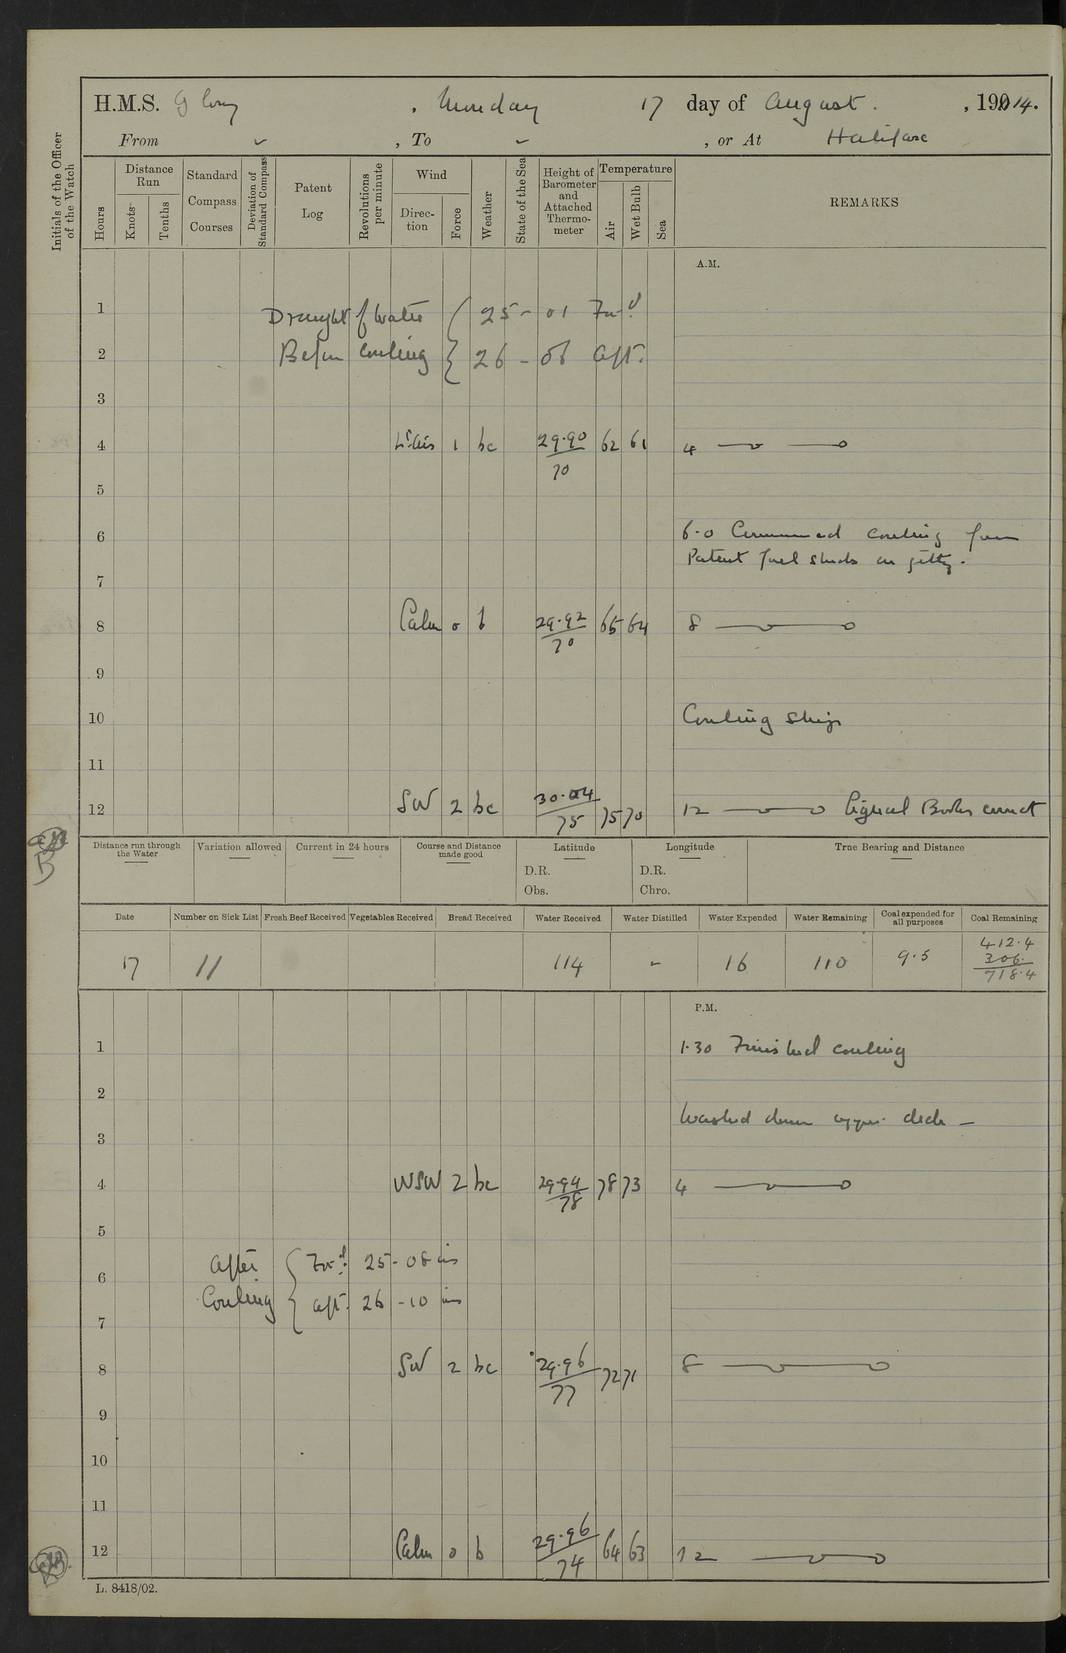 H.M.S. Glory , Monday 17 day of August. , 1914.
From , To , or At Halifax
Initials of the Officer of the Watch
Hours
Distance Run
Knots
Tenths
Standard Compass Courses
Deviation of Standard Compass
Patent Log
Revolutions per minute
Wind
Direction
Force
Weather
State of the Sea
Height of Barometer and Attached Thermometer
Temperature
Air
Wet Bulb
Sea
REMARKS
A.M.
1 Draught of Water { 25 - 01 For'd
2 Before Coaling { 26 - 06 aft.
3
4 Lt airs 1 bc 29.90/70 62 61 4
5
6 6.0 Commenced coaling from
Patent fuel sheds on jetty.
7
8 Calm 0 b 29.92/70 65 64 8
9
10 Coaling ship
11
12 SW 2 bc 30.04/75 75 70 12 Signal Books correct
Distance run through the Water
Variation allowed
Current in 24 hours
Course and Distance made good
Latitude
D.R.
Obs.
Longitude
D.R.
Chro.
True Bearing and Distance
Date Number on Sick List Fresh Beef Received Vegetables Received Bread Received Water Received Water Distilled Water Expended Water Remaining Coal expended for all purposes Coal Remaining
17 11 114 - 16 110 9.5 412.4
306.
718.4
P.M.
1 1.30 Finished coaling
2
Washed down upper deck -
3
4 WSW 2 bc 29.94/78 78 73 4
5
After { For'd: 25 - 08 ins
6
Coaling { aft. 26 - 10 ins
7
8 SW 2 bc 29.96/77 72 71 8
9
10
11
12 Calm 0 b 29.96/74 64 63 12
L. 8418/02.